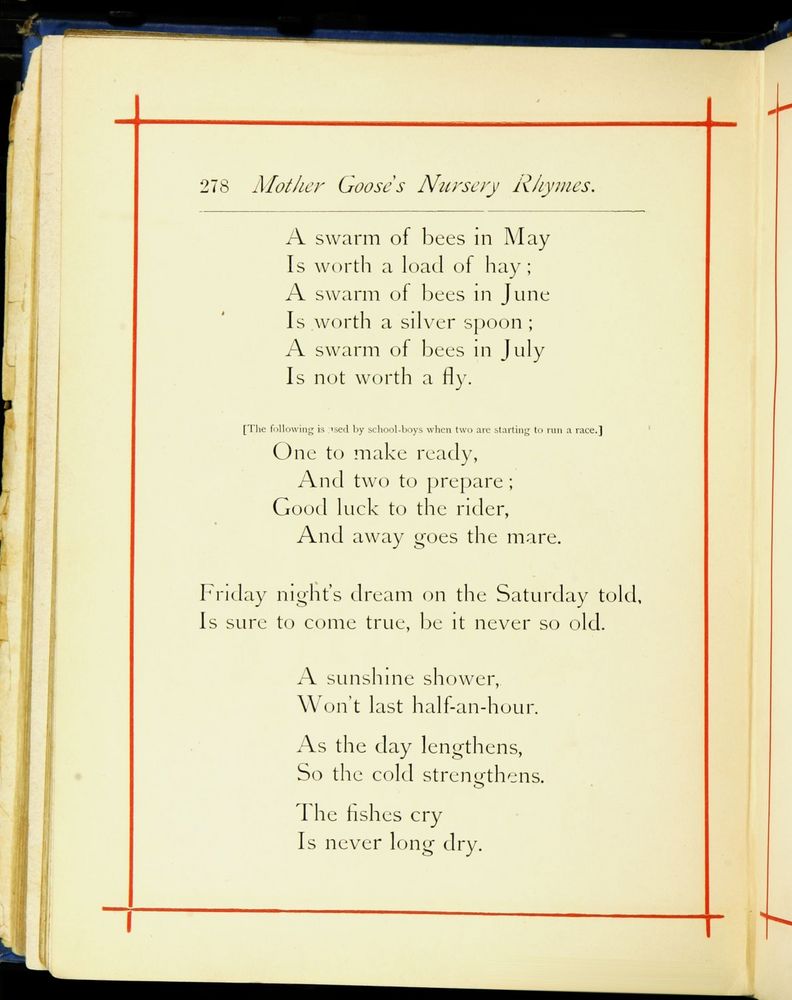 278 Mother Goose's Nursery Rhymes.
A swarm of bees in May
Is worth a load of hay;
A swarm of bees in June
Is worth a silver spoon;
A swarm of bees in July
Is not worth a fly.
[The following is used by school-boys when two are starting to run a race.]
One to make ready,
And two to prepare;
Good luck to the rider,
And away goes the mare.
Friday night's dream on the Saturday told,
Is sure to come true, be it never so old.
A sunshine shower,
Won't last half-an-hour.
As the day lengthens,
So the cold strengthens.
The fishes cry
Is never long dry.